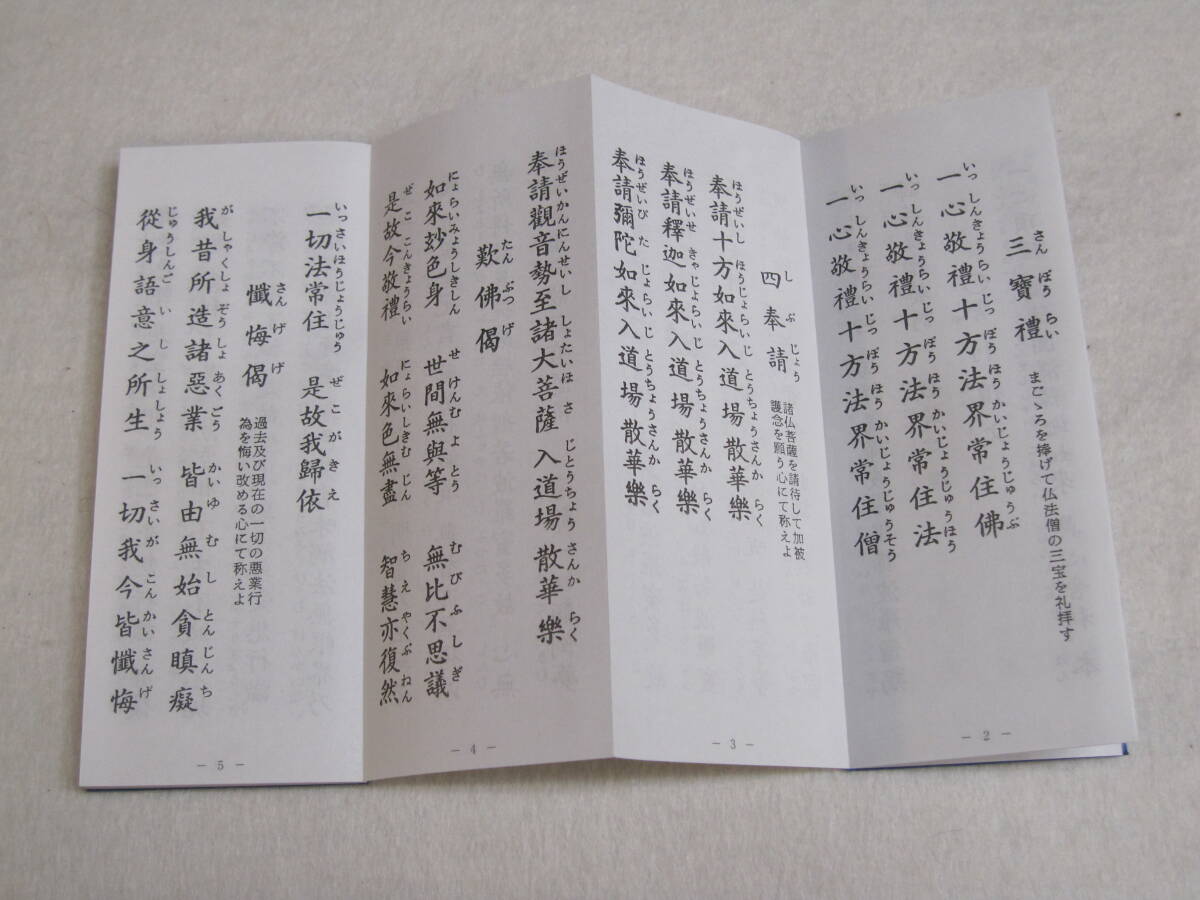 三寶禮 まごゝろを捧げて仏法僧の三宝を礼拝す
さんぼうらい
一心敬禮十方法界常住佛
いっしんきょうらいじっぽうほうかいじょうじゅうぶ
一心敬禮十方法界常住法
いっしんきょうらいじっぽうほうかいじょうじゅうほう
一心敬禮十方法界常住僧
いっしんきょうらいじっぽうほうかいじょうじゅうそう
－2－
四奉請 諸仏菩薩を請待して加被
護念を願う心にて称えよ
しぶじょう
奉請十方如來入道場散華樂
ほうぜいしほうじょらいじとうちょうさんからく
奉請釋迦如來入道場散華樂
ほうぜいせきゃじょらいじとうちょうさんからく
奉請彌陀如來入道場散華樂
ほうぜいびたじょらいじとうちょうさんからく
－3－
奉請觀音勢至諸大菩薩 入道場 散華樂
ほうぜいかんにんせいししょたいほさ じとうちょう さんからく
歎佛偈
たんぶつげ
如來玅色身 世間無與等 無比不思議
にょらいみょうしきしん せけんむよとう むびふしぎ
是故今敬禮 如來色無盡 智慧亦復然
ぜここんきょうらい にょらいしきむじん ちえやくぶねん
－4－
一切法常住 是故我歸依
いっさいほうじょうじゅう ぜこがきえ
懺悔偈 過去及び現在の一切の悪業行
為を悔い改める心にて称えよ
さんげげ
我昔所造諸惡業 皆由無始貪瞋癡
がしゃくしょぞうしょあくごう かいゆむしとんじんち
從身語意之所生 一切我今皆懺悔
じゅうしんごいししょしょう いっさいがこんかいさんげ
－5－